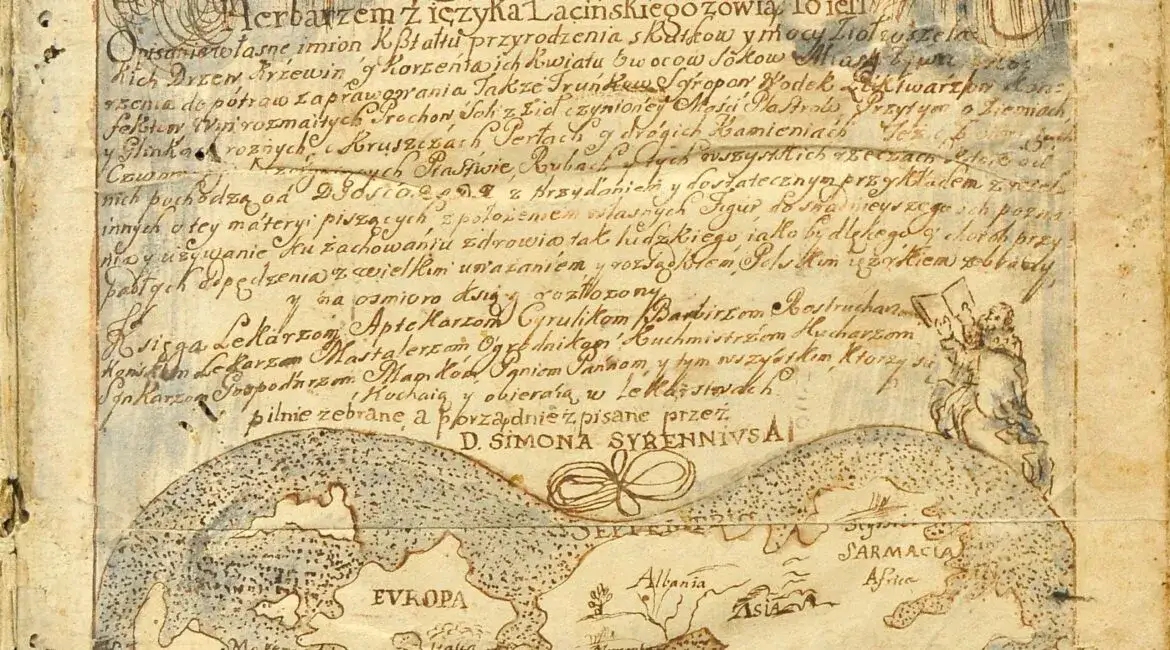 Herbarzem z ięzyka Łacińskiego zowią To iest
Opisanie własne imion Kształtu przyrodzenia skutkow y mocy Zioł wszela
kich Drzew Krzewin y Korzenia ich Kwiatu Owocow Sokow Miasg
rzenia do potraw zaprawowania Także Trunkow Syropow Wodek Lektwarzow Kon
fektow Win rozmaitych Prochow Soli z zioł czynioney Maści Plastrow Przytym o Ziemiach
y Glinkach roznych o Kruszczach Perłach y drogich Kamieniach Też o
Ptastwie, Rybach y tych wszystkich rzeczach
nich pochodzą od z Przydaniem y dostatecznym przykładem z
innych o tey materyi piszących z położeniem własnych Figur dla snadnieyszego ich pozna
nia y używanie ku zachowaniu zdrowia tak ludzkiego iako bydlęcego y chorob przy
padłych odpędzenia z wielkim uważaniem y rozsądkiem Polskim ięzykiem zebrany
y na osmioro Ksiąg rozłożony
Księga Lekarzom Aptekarzom Cyrulikom Barbirzom Rostrucharzom
końskim Lekarzom Mastalerzom Ogrodnikom Kuchmistrzom Kucharzom
Synkarzom Gospodarzom Mamkom Paniom Pannom y tym wszystkim ktorzy się
kochaią y obieraią w Lekarstwach
pilnie zebrane, a porządnie zpisane przez
D. SIMONA SYRENNIVSA
SEPTENTRIO
SARMACIA
Africa
Albania
EVROPA
ASIA
Italia